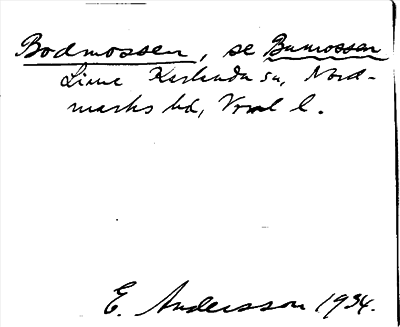 Bodmossen, se Bumossen
Lime Karlanda sn, Nord-
marks hd, Vrml l.
E. Andersson 1934.